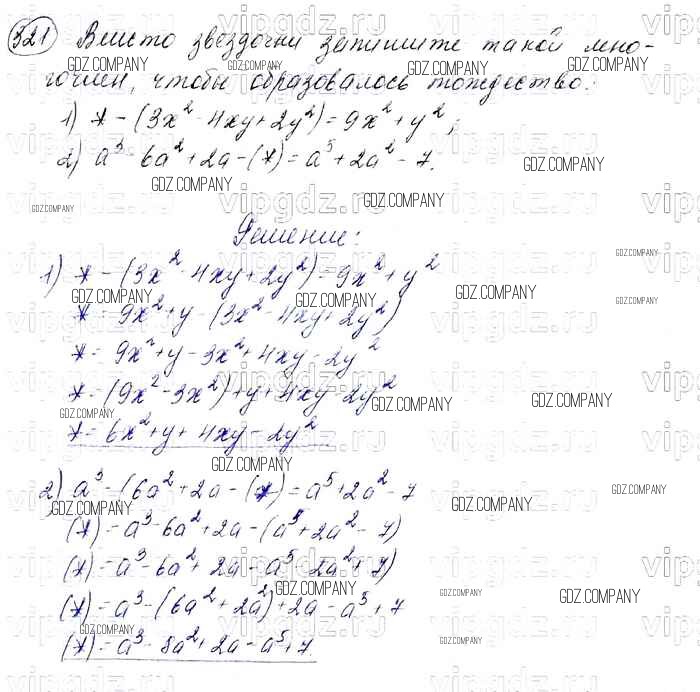 321 Вместо звёздочки запишите такой мно-
гочлен, чтобы образовалось тождество:
1) * - (3x² - 4xy + 2y²) = 9x² + y²;
2) a³ - 6a² + 2a - (*) = a⁵ + 2a² - 7.
Решение:
1) * - (3x² - 4xy + 2y²) = 9x² + y²
* = 9x² + y - (3x² - 4xy + 2y²)
* = 9x² + y - 3x² + 4xy - 2y²
* = (9x² - 3x²) + y + 4xy - 2y²
* = 6x² + y + 4xy - 2y²
2) a³ - (6a² + 2a - (*) = a⁵ + 2a² - 7
(*) = a³ - 6a² + 2a - (a⁵ + 2a² - 7)
(*) = a³ - 6a² + 2a - a⁵ - 2a² + 7)
(*) = a³ - (6a² + 2a²) + 2a - a⁵ + 7
(*) = a³ - 8a² + 2a - a⁵ + 7.
GDZ.COMPANY
vipgdz.ru